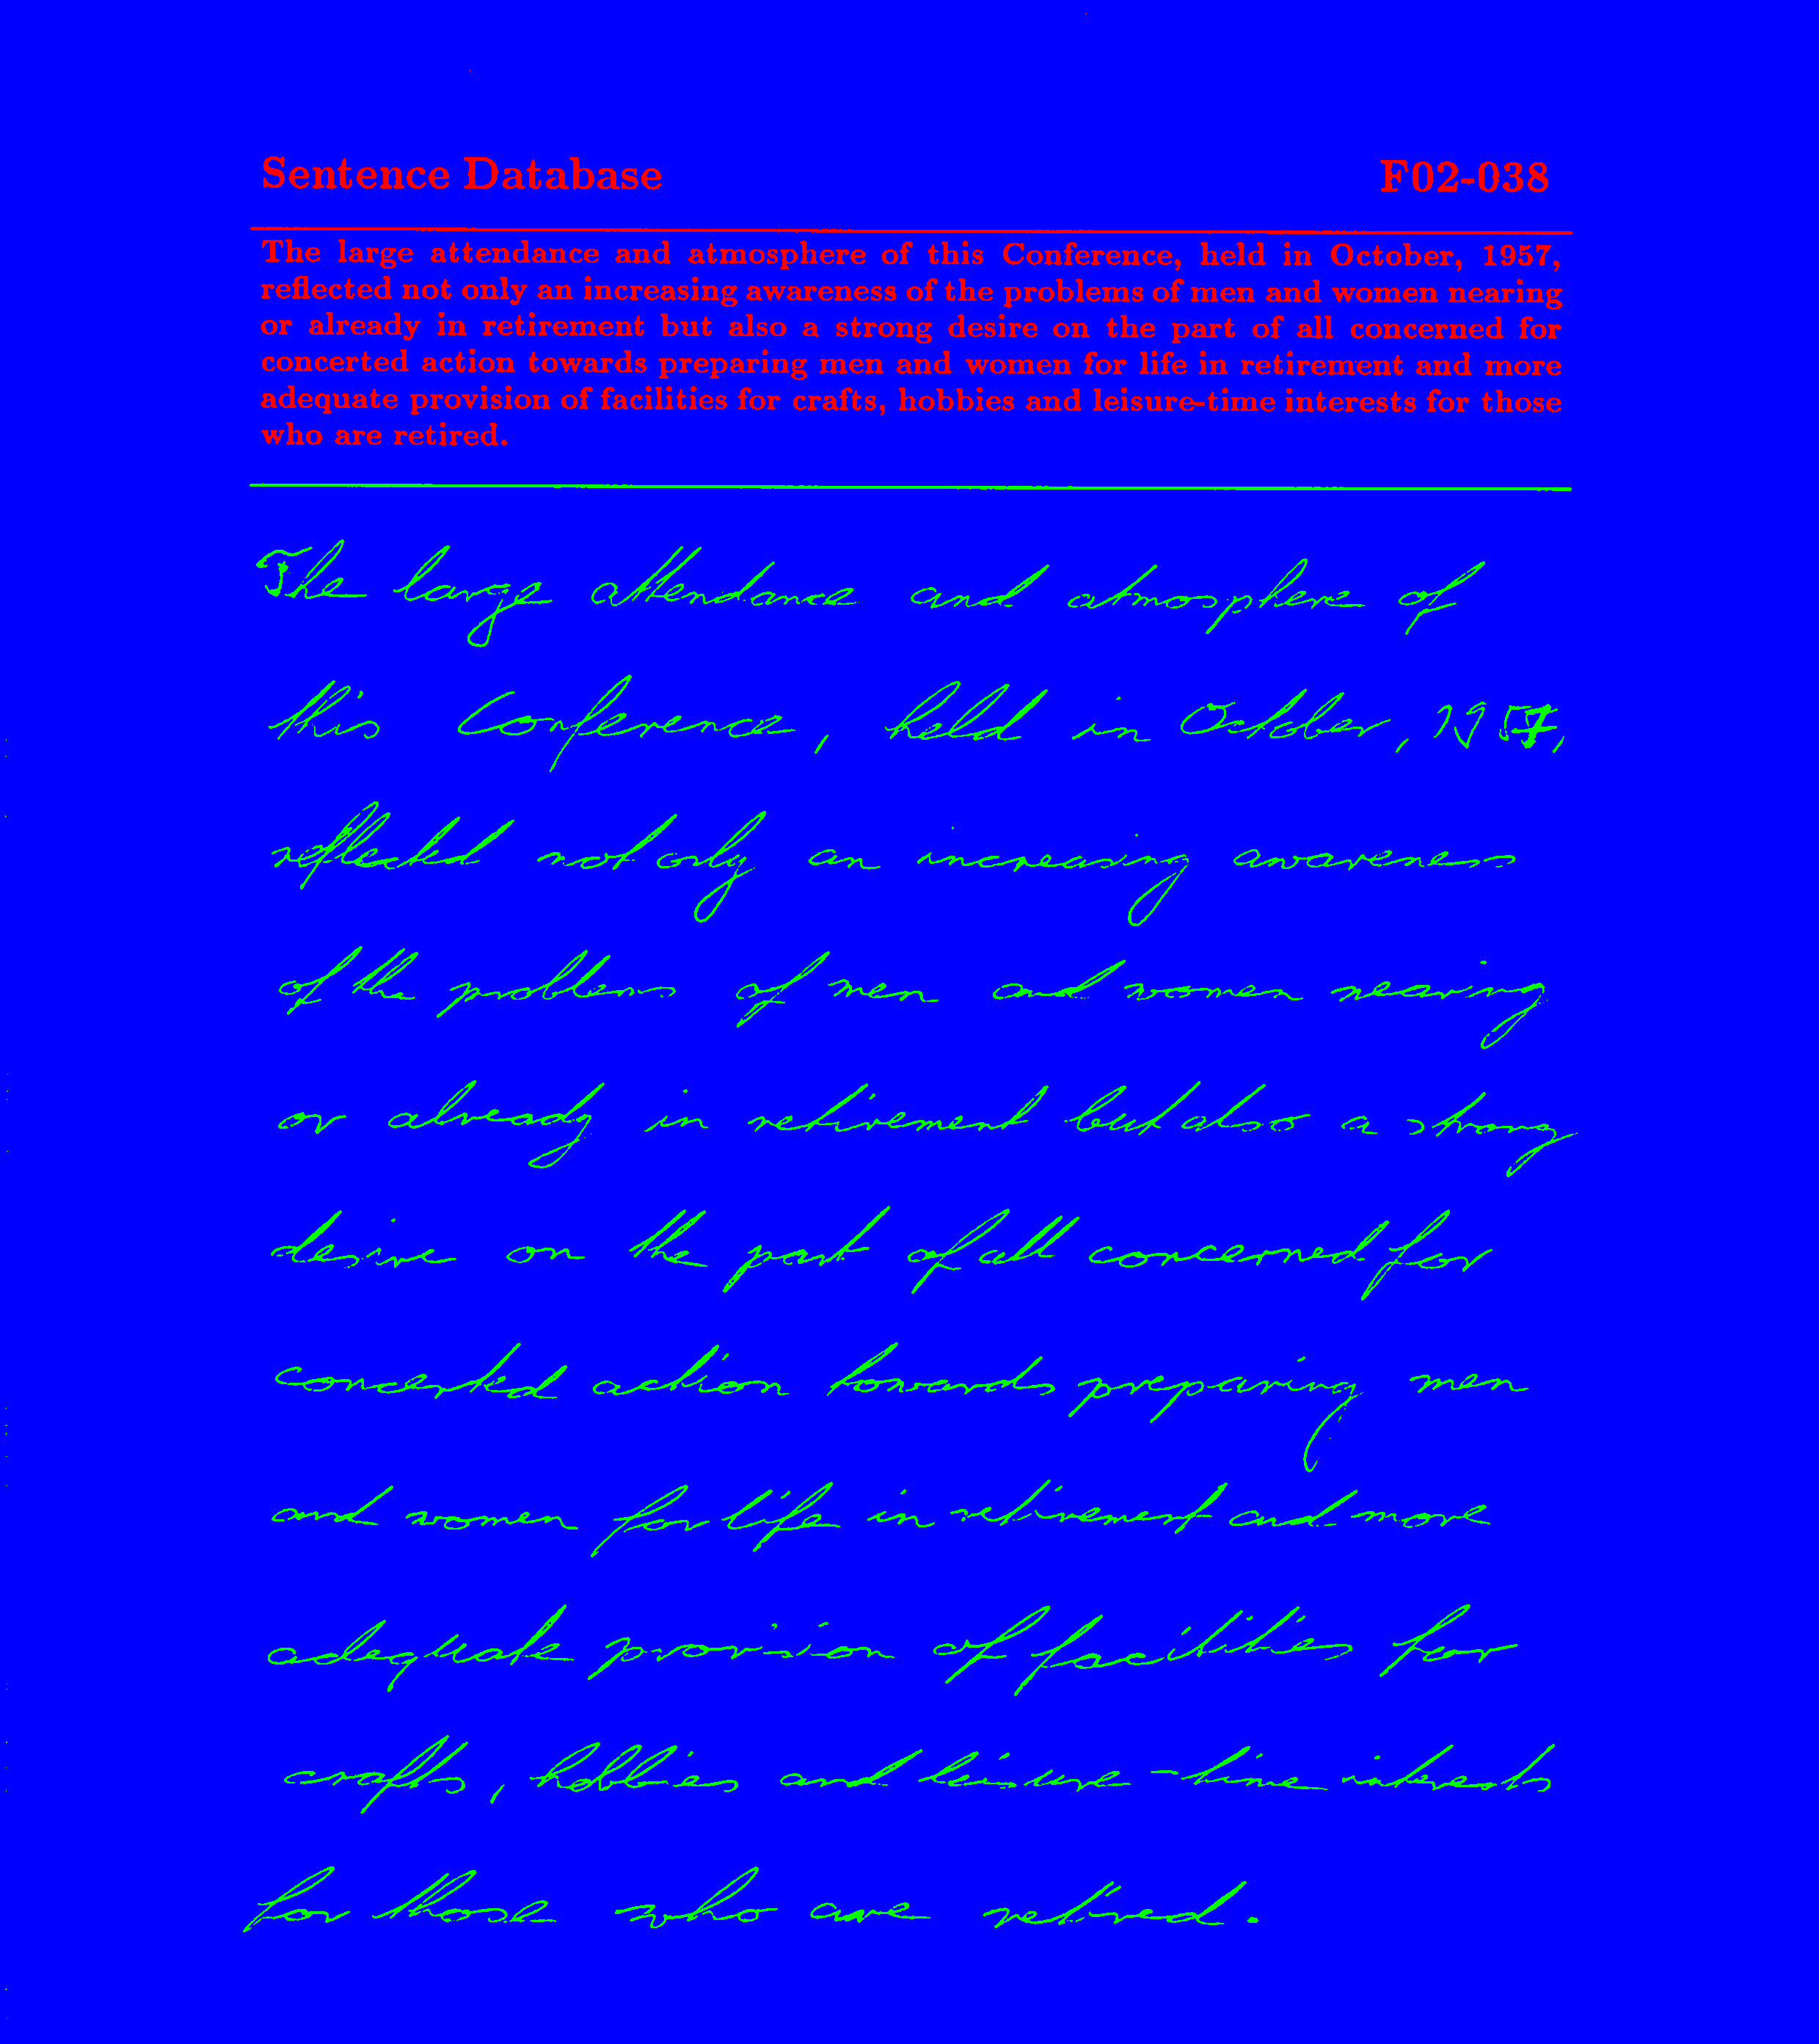 Sentence Database F02-038
The large attendance and atmosphere of this Conference, held in October, 1957,
reflected not only an increasing awareness of the problems of men and women nearing
or already in retirement but also a strong desire on the part of all concerned for
concerted action towards preparing men and women for life in retirement and more
adequate provision of facilities for crafts, hobbies and leisure-time interests for those
who are retired.
The large attendance and atmosphere of
this Conference, held in October, 1957,
reflected not only an increasing awareness
of the problems of men and women nearing
or already in retirement but also a strong
desire on the part of all concerned for
concerted action towards preparing men
and women for life in retirement and more
adequate provision of facilities for
crafts, hobbies and leisure-time interests
for those who are retired.